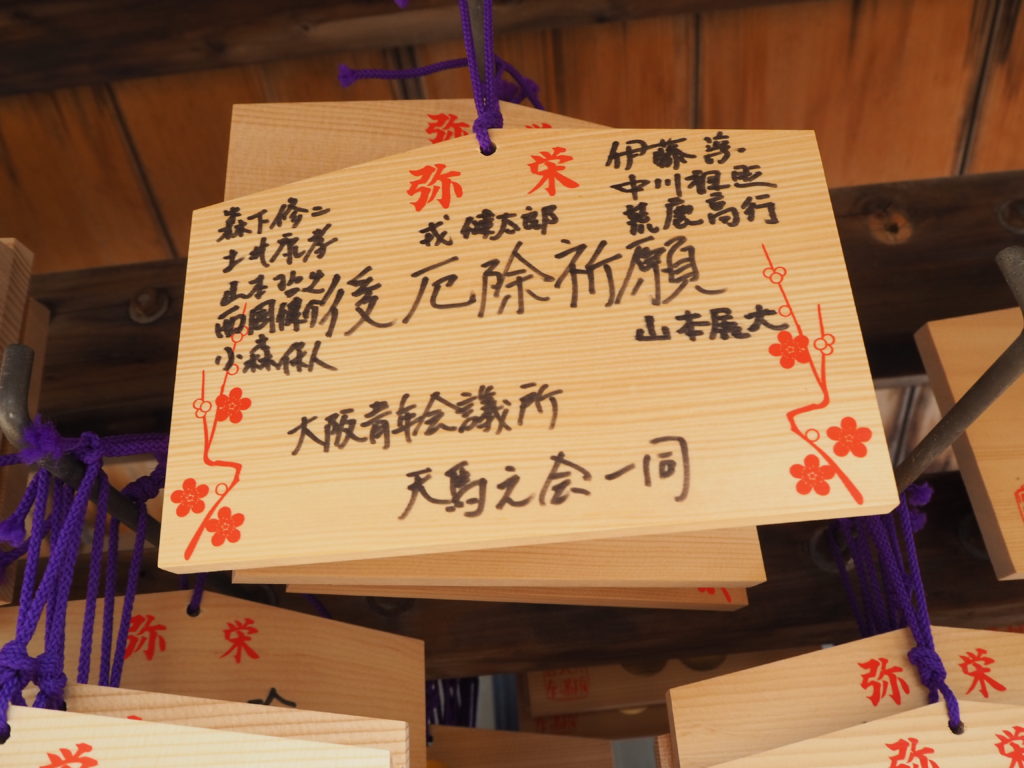 弥栄
伊藤淳
中川祖
荒鹿高行
戎健太郎
森下修二
土井康孝
山本
西岡
小森
後厄除祈願
山本展大
大阪青年会議所
天馬之会一同
弥
弥栄
弥栄
栄
弥栄